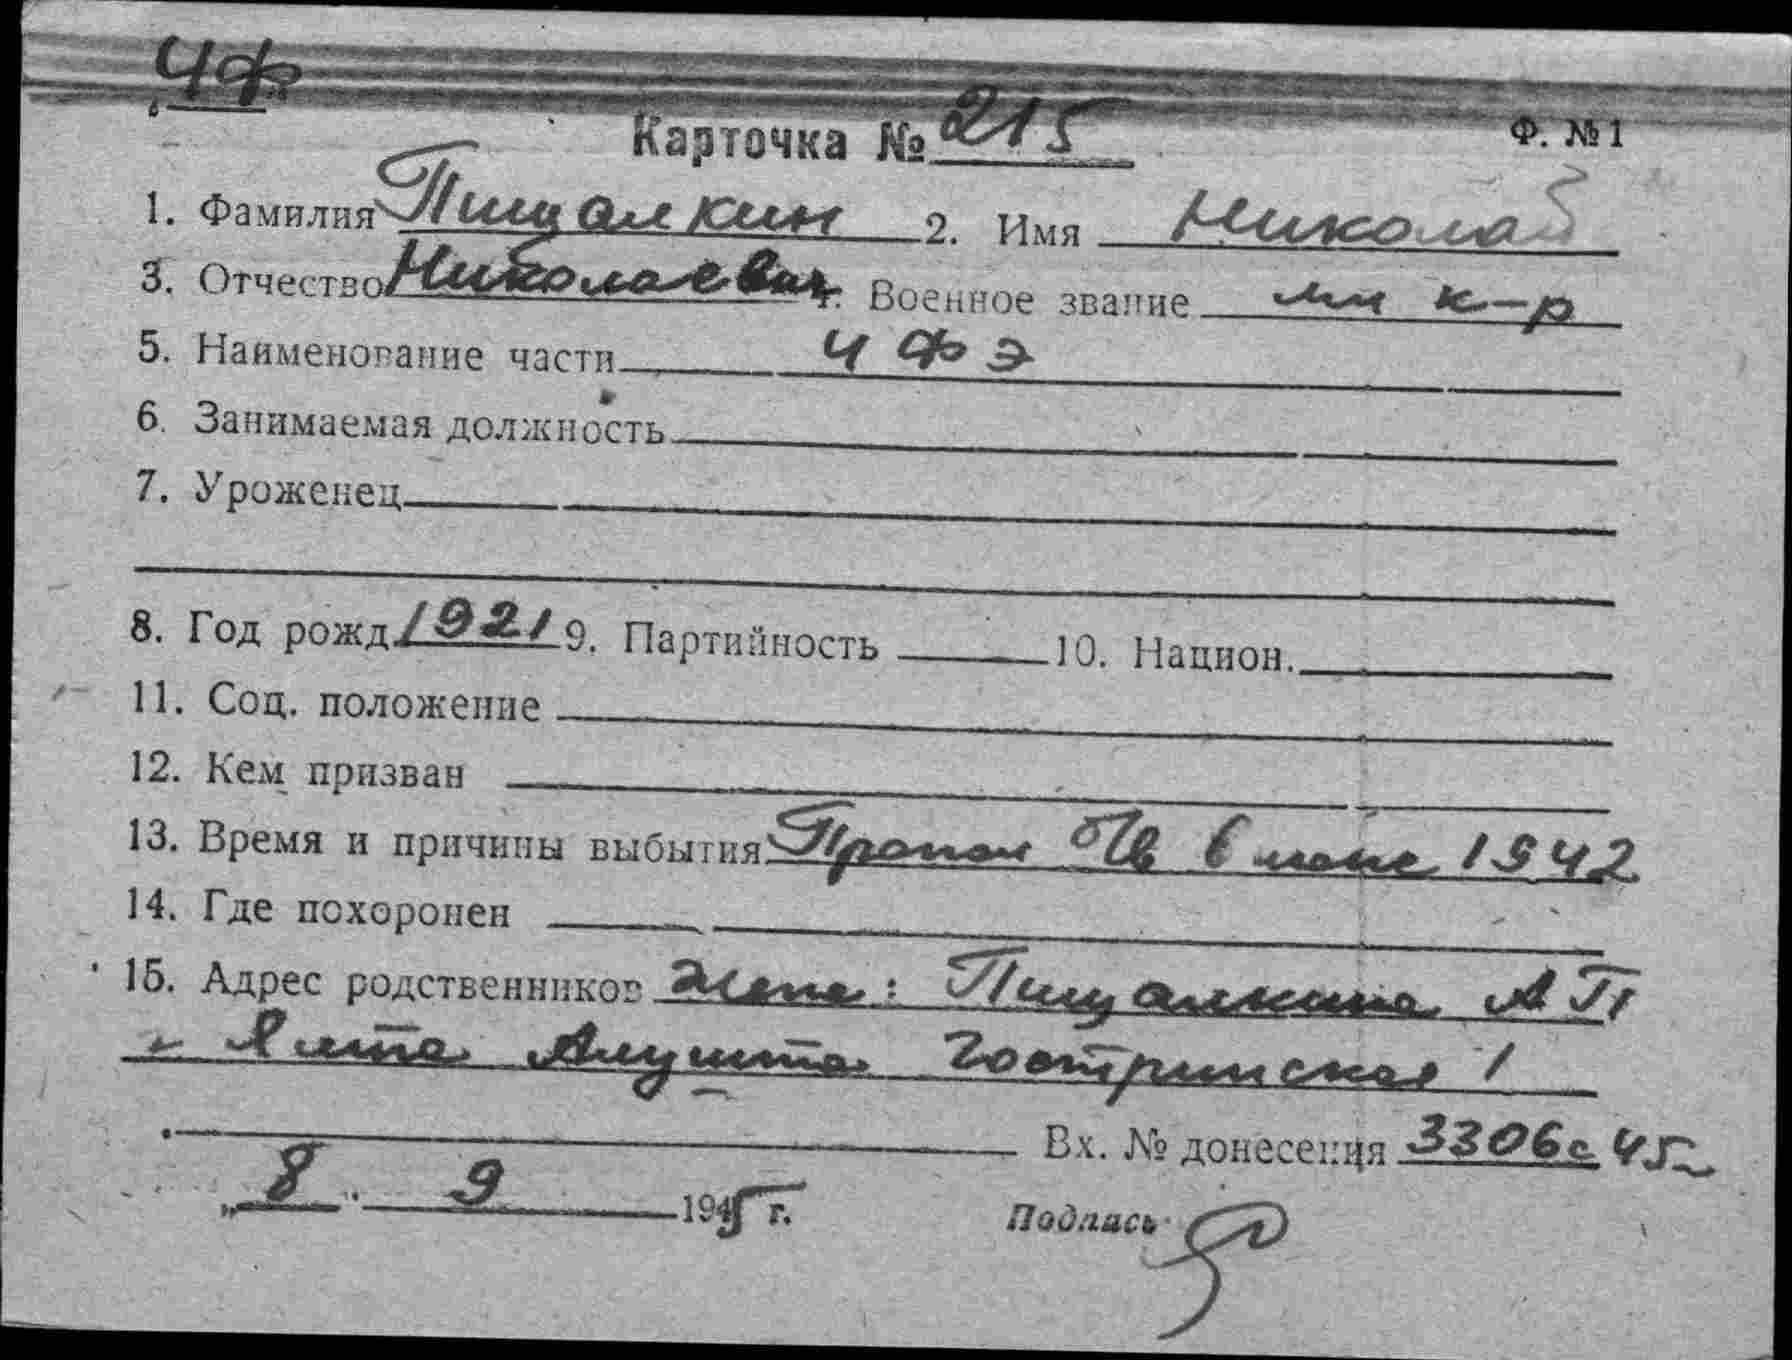 ЧФ
Карточка № 215 Ф. № 1
1. Фамилия Пищалкин 2. Имя Николай
3. Отчество Николаевич 4. Военное звание мл к-р
5. Наименование части ЧФЭ
6. Занимаемая должность
7. Уроженец
8. Год рожд. 1921 9. Партийность 10. Национ.
11. Соц. положение
12. Кем призван
13. Время и причины выбытия Пропал б/в в июне 1942
14. Где похоронен
15. Адрес родственников Жена: Пищалкина А П
г Ялта Алушта 1
Вх. № донесения 3306с 45
„8" 9 1945 г. Подпись